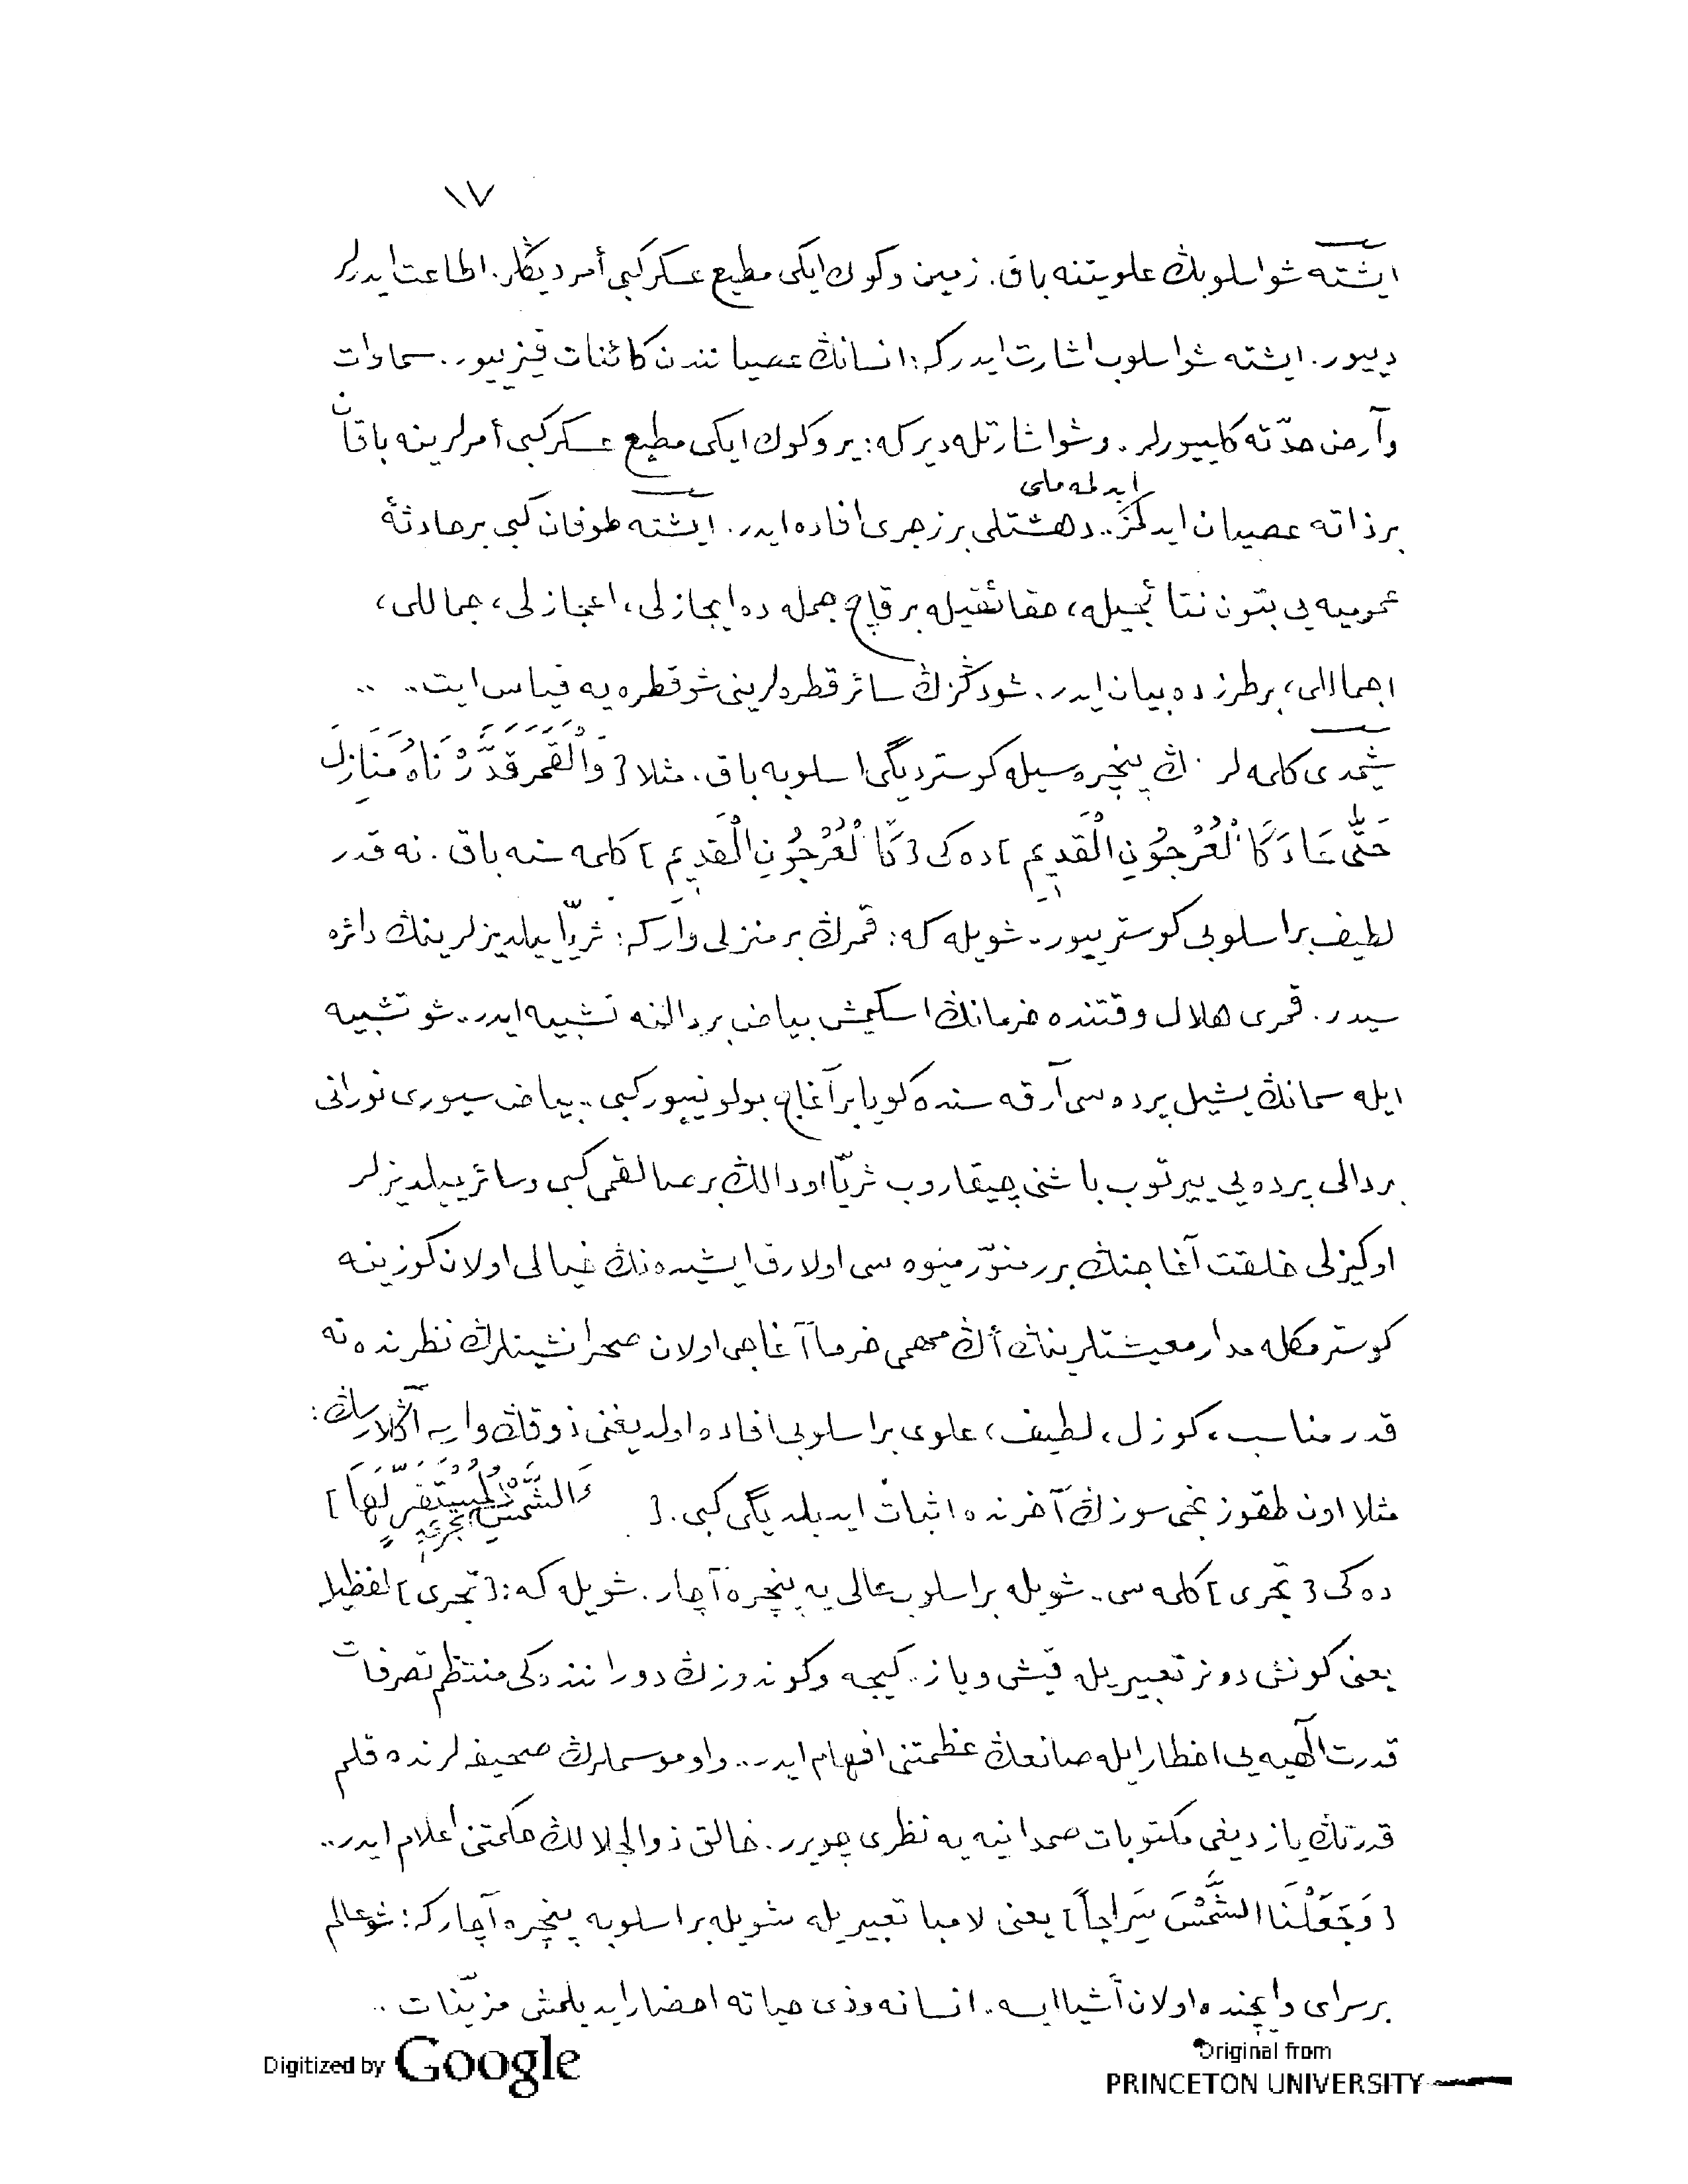 ١٧
ايشته شو اسلوبڭ علويتنه باق. زمين و كوك ايكى مطيع عسكر كبى أمر ديڭلر. اطاعت ايدرلر
دييور. ايشته شو اسلوب اشارت ايدركه: انسانڭ عصياننندن كائنات قيزييور.. سماوات
وآرض حدّته كلييورلر. و شو اشارتله دير كه: ير و كوك ايكى مطيع عسكر كبى أمرلرينه باقان
ايدلمه ملى
بر ذاته عصيان ايدلمز.. دهشتلى بر زجرى افاده ايدر. ايشته طوفان كبى بر حادثۀ
عموميه يى بتون نتائجيله، حقائقيله بر قاچ جمله ده ايجازلى، اعجازلى، جماللى،
اجماللى، بر طرزده بيان ايدر. شو دڭزڭ سائر قطره لرينى شو قطره يه قياس ايت..
شيمدى كلمه لرڭ پنجره سيله كوسترديگى اسلوبه باق. مثلا [ وَالْقَمَرَ قَدَّرْنَاهُ مَنَازِلَ
حَتَّى عَادَ كَالْعُرْجُونِ الْقَدِيمِ ] ده كى [ كَالْعُرْجُونِ الْقَدِيمِ ] كلمه سنه باق. نه قدر
لطيف بر اسلوبى كوسترييور. شويله كه: قمرڭ بر منزلى واركه: ثريّا ييلديزلرينڭ دائره
سيدر. قمرى هلال وقتنده خرمانڭ اسكيمش بياض بر دالنه تشبيه ايدر. شو تشبيه
ايله سمانڭ يشيل پرده سى آرقه سنده كويا بر آغاج بولونييور كبى.. بياض سيورى نورانى
بر دالى پرده يى ييرتوب باشنى چيقاروب ثريّا او دالڭ بر صالقمى كبى و سائر ييلديزلر
او كيزلى خلقت آغاجنڭ برر منوّر ميوه سى اولارق ايشيده نڭ خيالى اولان كوزينه
كوسترمكله مدار معيشتلرينڭ أڭ مهمى خرما آغاجى اولان صحرانشينلرڭ نظرنده نه
قدر مناسب، كوزل، لطيف، علوى بر اسلوبى افاده اولديغنى ذوقڭ وارسه آڭلارسڭ:
مثلا اون طقوزنجى سوزڭ آخرنده اثبات ايديلديگى كبى. [ وَالشَّمْسُ تَجْرِى لِمُسْتَقَرٍّ لَهَا ]
ده كى [ تجرى ] كلمه سى.. شويله بر اسلوب عالى يه پنجره آچار. شويله كه: [ تجرى ] لفظيله
يعنى كونش دونر تعبيريله قيش و ياز.. كيجه و كوندوزڭ دوراننده كى منتظم تصرفات
قدرت الٓهيه يى اخطار ايله صانعڭ عظمتنى افهام ايدر.. و او موسملرڭ صحيفه لرنده قلم
قدرتڭ يازديغى مكتوبات صمدانيه يه نظرى چويرر. خالق ذوالجلالڭ حكمتنى اعلام ايدر..
[ وَجَعَلْنَا الشَّمْسَ سِرَاجاً ] يعنى لامبا تعبيريله شويله بر اسلوبه پنجره آچار كه: شو عالم
بر سراى و ايچنده اولان أشيا ايسه.. انسانه و ذى حياته احضار ايديلمش مزيّنات..
Digitized by Google
Original from
PRINCETON UNIVERSITY